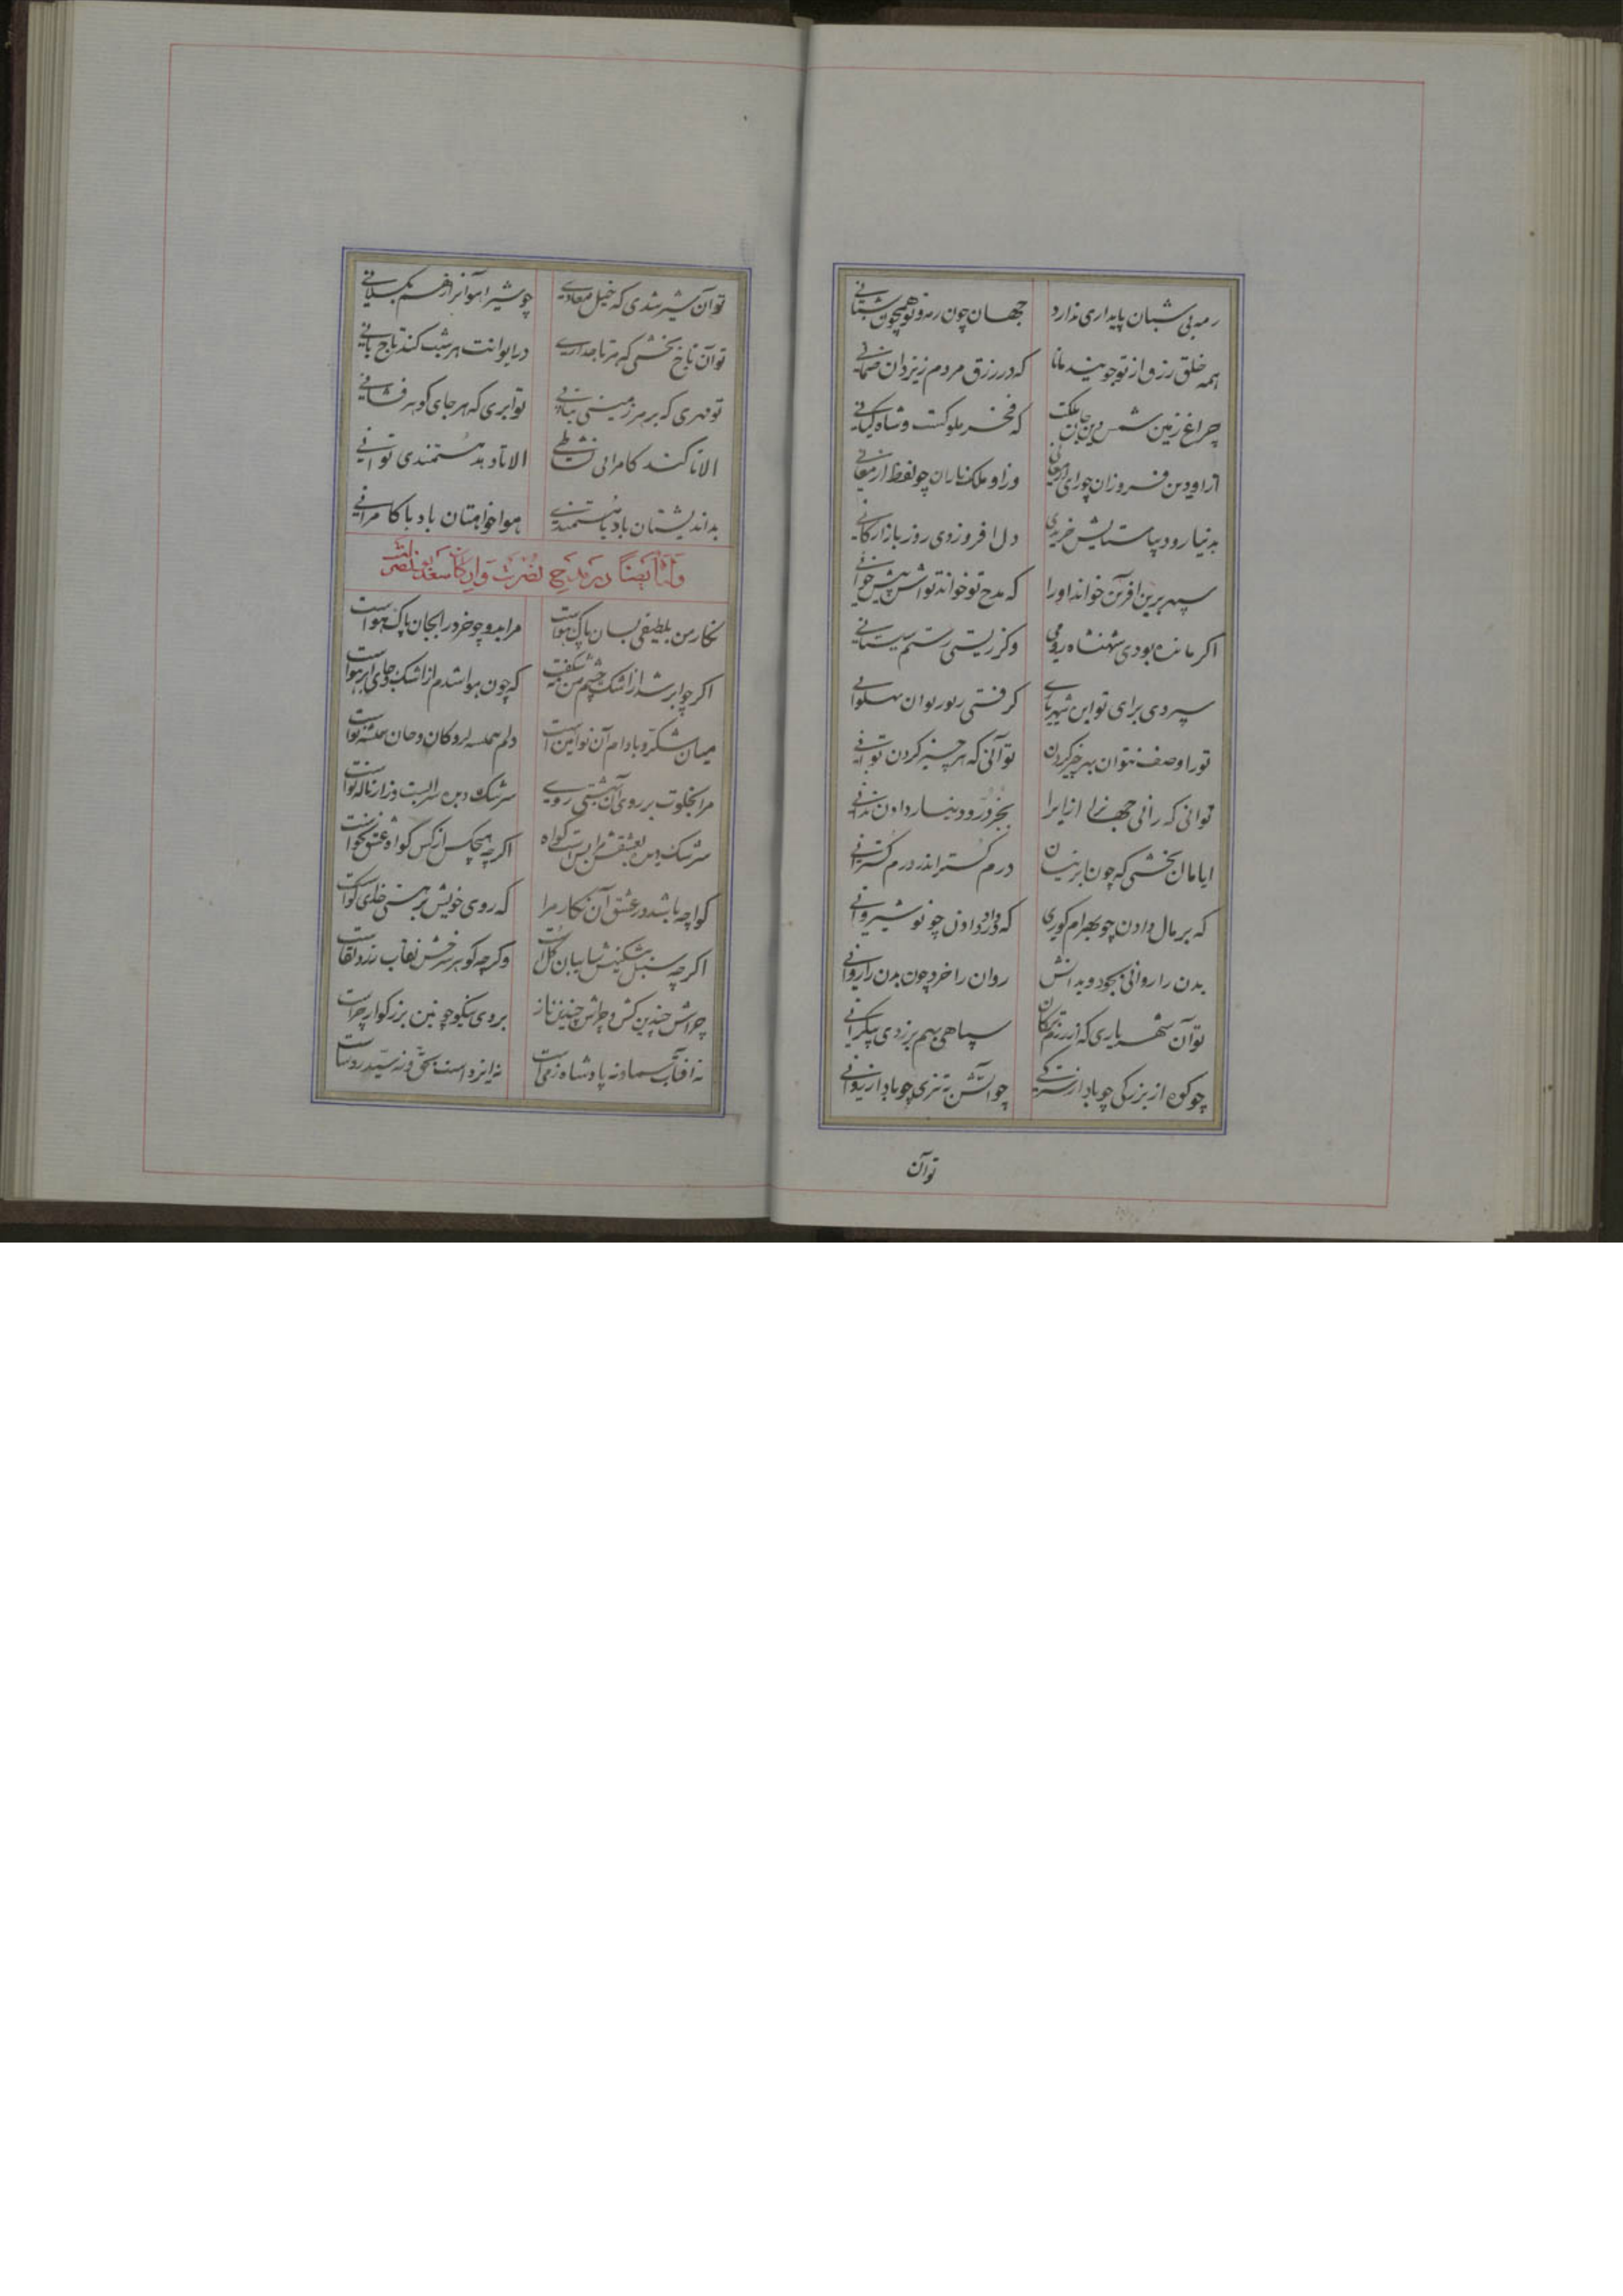 رمه بی شبان پایداری ندارد جهان چون رمه و تو همچون شبانی
همه خلق رزق از تو جویند مانا که در رزق مردم ز یزدان ضمانی
چراغ زمین شمس دین جان ملکت که فخر ملوکست و شاه کیانی
از او دین فروزان چو رای از معانی وز او ملک نازان چو لفظ از معانی
بدنیا رود پیا ستایش خریدی دل افروزدی روز بازارگانی
سپهر برین آفرین خواند او را که مدح تو خواند تو اش پیش خوانی
اگر مانده بودی شهنشاه رومی وگر زیستی رستم سیستانی
سپردی برای تو این شهریاری گرفتی تو ایوان پهلوانی
تو را وصف نتوان بهر چیز کردن تو آنی که هر چیز کردن توانی
توانی که رانی جهان را ازیرا بجز زر و دینار دادن ندانی
ایا مال بخشی که چون ابر نیسان درم گستر اندر درم گسترانی
که بر مال دادن چو بهرام گوری که داد دادن چو نوشیروانی
بدن را روانی بجود و بدانش روان را خرد چون بدن را روانی
تو آن شهریاری که از رزم ترکان سپاهی بهم برزدی بیکرانی
چو کوه از بزرگی چو باد از سترگی چو آتش بتیزی چو باد از توانی
تو آن
تو آن شیر شدی که خیل معادی چو شیر آهوان را ز هم بگسلانی
تو آن تاج بخشی که هر تاجداری در ایوانت هر شب کند تاج بانی
تو مهری که بر هر زمینی بتابی تو ابری که هر جای گوهر فشانی
الا تا کند کامرانی نشاطی الا تا دهد مستمندی توانی
بداندیشتان باد با مستمندی هواخواهتان باد با کامرانی
وله ایضا در مدح نصرت و ارکان سعد بونصر است
نگار من بلطیفی بسان پاک هواست مرا بدو چو خرد را بجان پاک هواست
اگر چو ابر شد از اشک چشم من نه شگفت که چون هوا شدم از اشک و جای ابر هواست
میان شکر و بادام آن نوآیین است دلم همیشه گروگان و جان همیشه نواست
مرا بخلوت بر روی آن بهشتی روی سرشک دیده شرابست و زار ناله نواست
سرشک دیده بعشقش مرا بس است گواه اگرچه هیچکس از کس گواه عشق نخواست
گوا چه باشد در عشق آن نگار مرا که روی خویش بر هستی خدای گواست
اگرچه سنبل مشکینش سایبان گل است وگرچه گوهر سرخش نقاب زرد لقاست
چراش چندین کش و چراش چندین ناز بروی نیکو چونین بزرگوار چراست
نه آفتاب سما و نه پادشاه زمی است نه ایزد است بحق و نه سید رؤساست